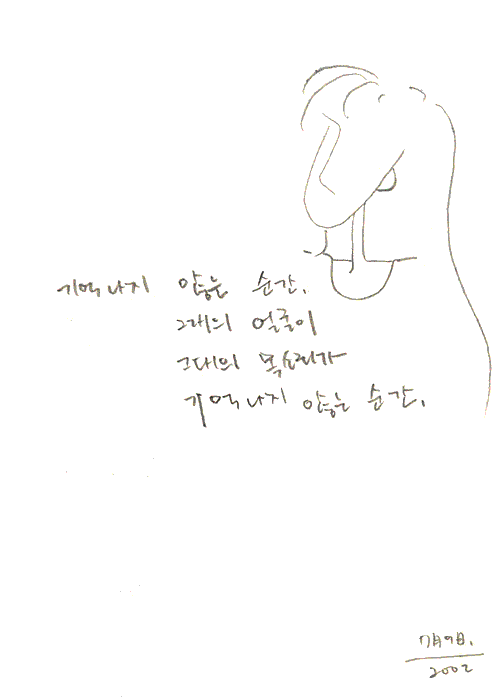 기억나지 않는 순간.
그대의 얼굴이
그대의 목소리가
기억나지 않는 순간.
7月9日.
2002